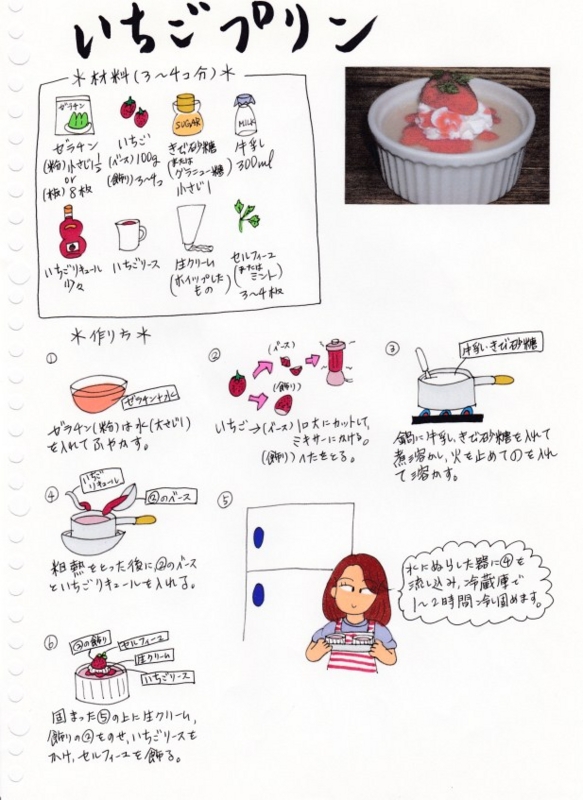 いちごプリン
＊材料(3〜4コ分)＊
ゼラチン
ゼラチン
(粉)小さじ1½
or
(板)8枚
いちご
(ベース)100g
(飾り)3〜4コ
SUGAR
きび砂糖
(または
グラニュー糖)
小さじ1
MILK
牛乳
300ml
いちごリキュール
少々
いちごソース
生クリーム
(ホイップした
もの)
セルフィーユ
(または
ミント)
3〜4枚
＊作り方＊
①
ゼラチン+水
ゼラチン(粉)は水(大さじ1)
を入れてふやかす。
②
(ベース)
(飾り)
いちご→(ベース)1口大にカットして、
ミキサーにかける。
(飾り)ヘタをとる。
③
牛乳・きび砂糖
鍋に牛乳、きび砂糖を入れて
煮溶かし、火を止めて①を入れ
て溶かす。
④
いちご
リキュール
②のベース
粗熱をとった後に②のベース
といちごリキュールを入れる。
⑤
水にぬらした器に④を
流し込み、冷蔵庫で
1〜2時間冷し固めます。
⑥
②の飾り
セルフィーユ
生クリーム
いちごソース
固まった⑤の上に生クリーム、
飾りの②をのせ、いちごソースを
かけ、セルフィーユを飾る。